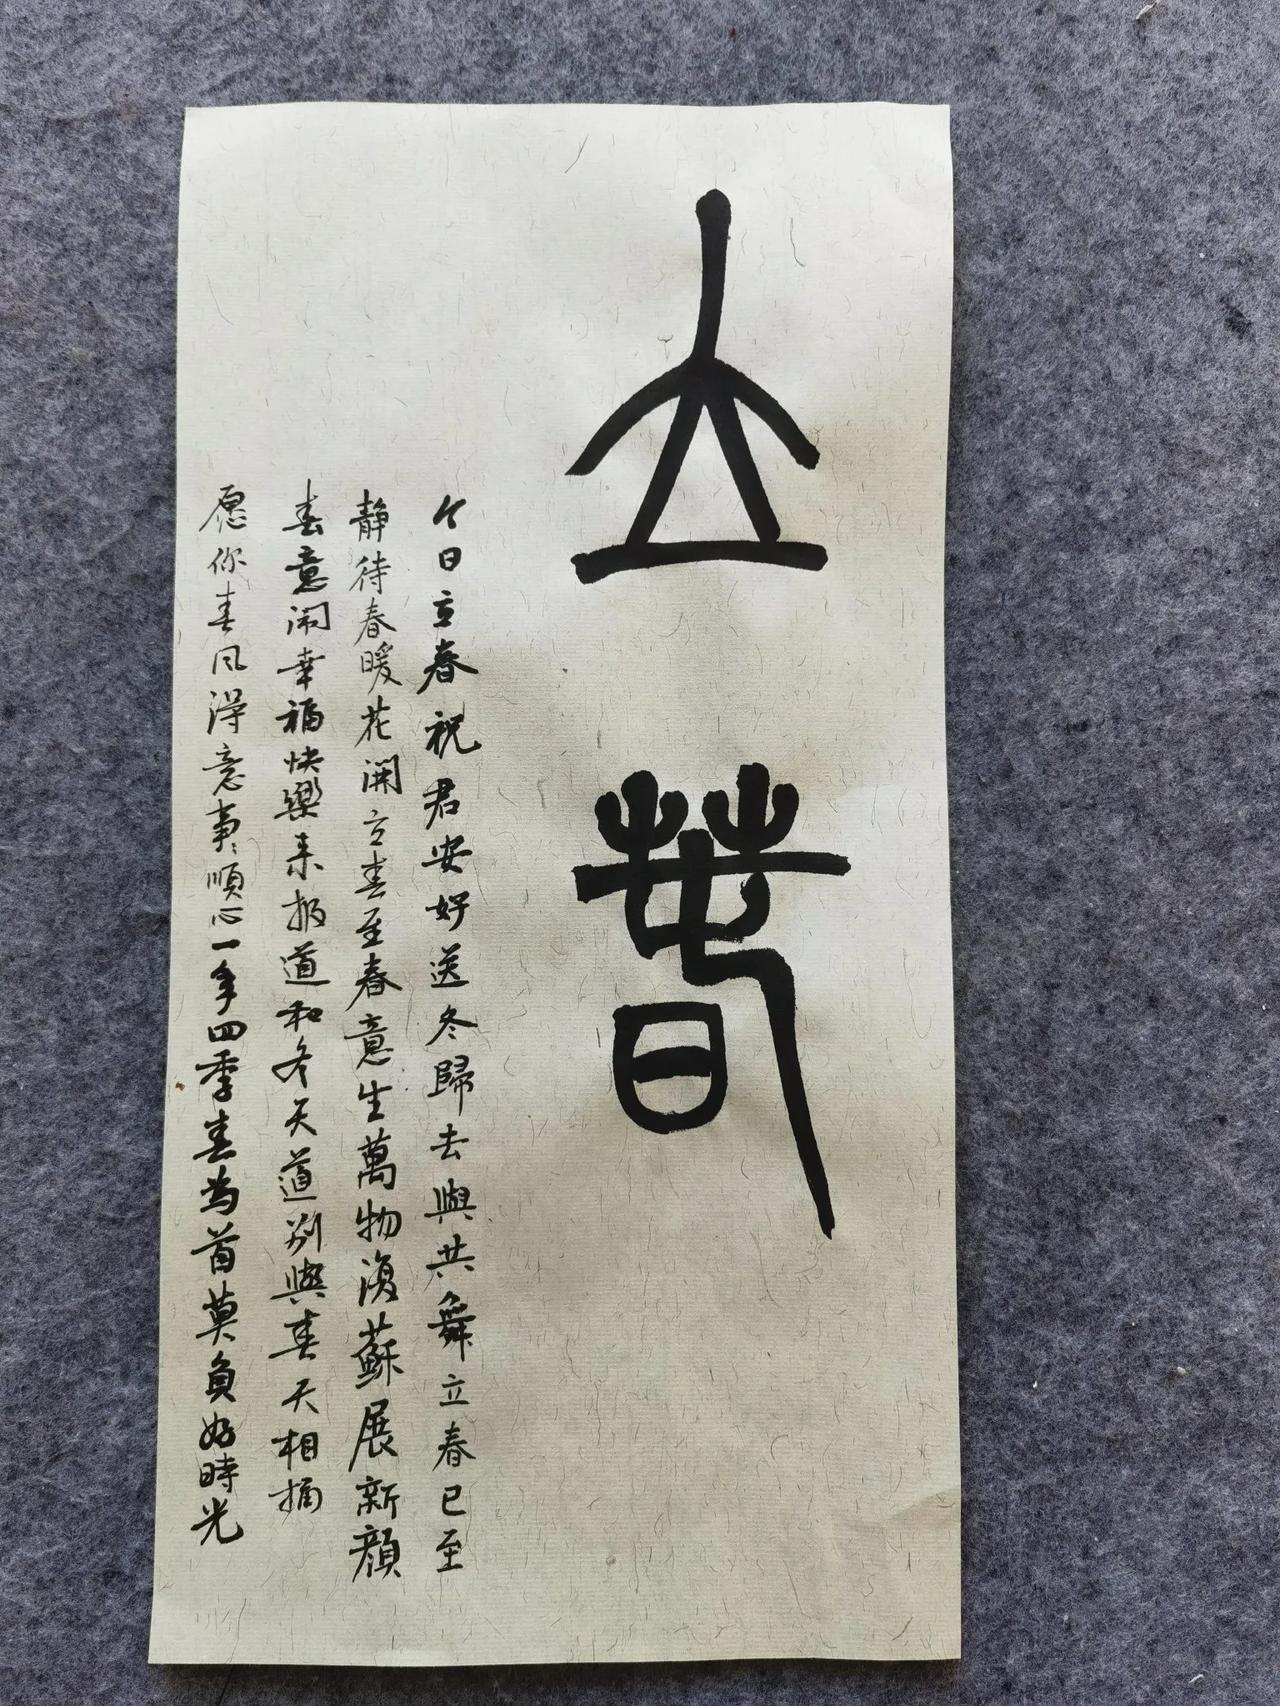 立春
今日立春祝君安好送冬歸去與共舞立春已至
静待春暖花開立春至春意生萬物復蘇展新顔
春意闹幸福快樂来报道和冬天道别與春天相擁
愿你春风得意事〻順心一年四季春为首莫負好時光